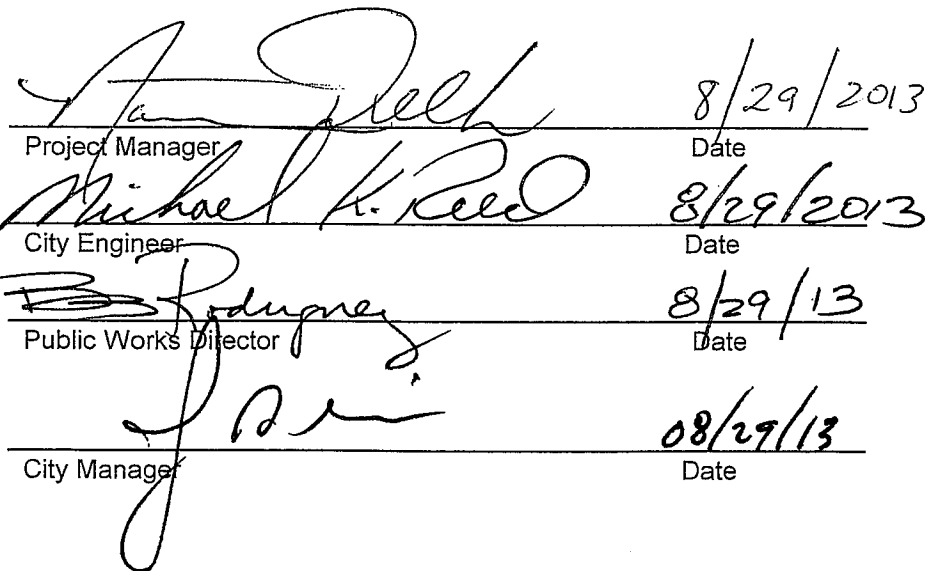 8/29/2013
Project Manager Date
Michael K. Reed 8/29/2013
City Engineer Date
Rodriguez 8/29/13
Public Works Director Date
08/29/13
City Manager Date